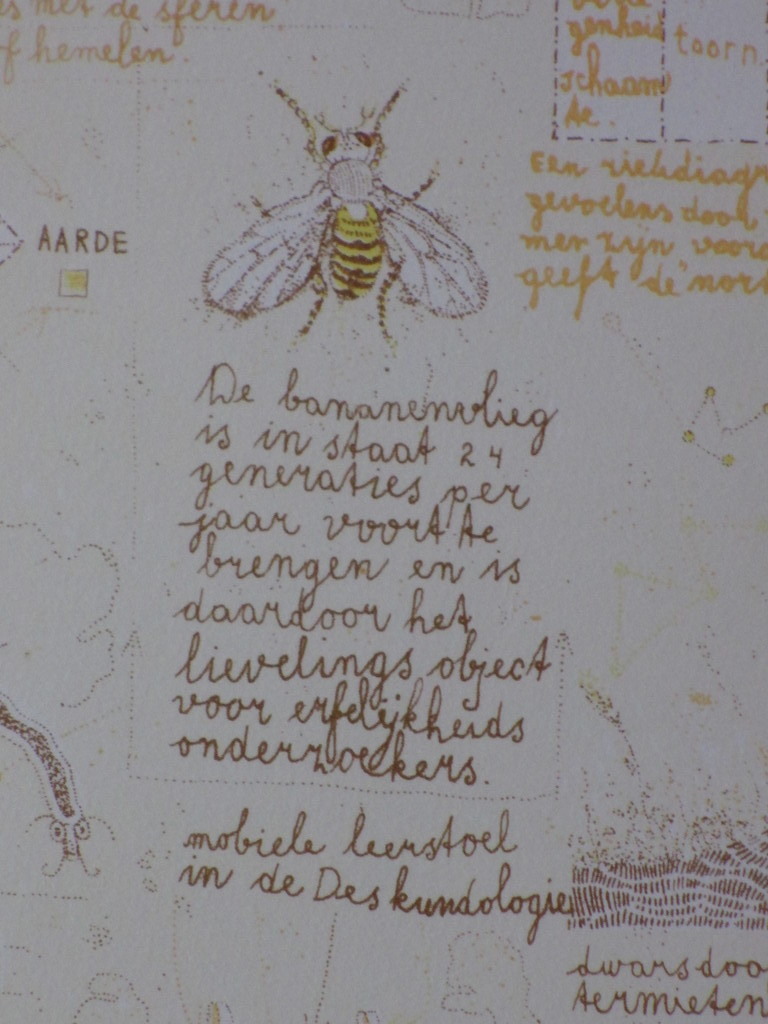 es met de sferen
of hemelen.
genheid
toorn.
schaam
te.
AARDE
Een riekdiagr
gevoelens door
men zijn voor
geeft de "nor
De bananenvlieg
is in staat 24
generaties per
jaar voort te
brengen en is
daardoor het
lievelings object
voor erfelijkheids
onderzoekers.
mobiele leerstoel
in de Deskundologie
dwarsdoo
termieten